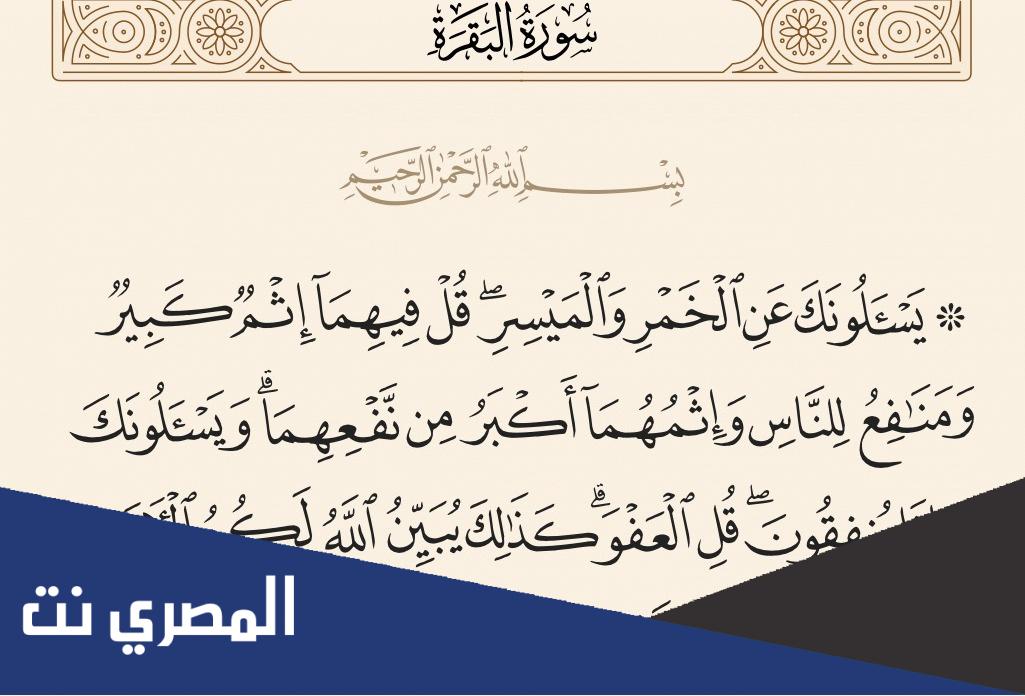 سُورَةُ البَقَرَةِ
بِسْمِ ٱللَّهِ ٱلرَّحْمَٰنِ ٱلرَّحِيمِ
۞ يَسْـَٔلُونَكَ عَنِ ٱلْخَمْرِ وَٱلْمَيْسِرِ ۖ قُلْ فِيهِمَآ إِثْمٌ كَبِيرٌ
وَمَنَٰفِعُ لِلنَّاسِ وَإِثْمُهُمَآ أَكْبَرُ مِن نَّفْعِهِمَا ۗ وَيَسْـَٔلُونَكَ
يُنفِقُونَ ۖ قُلِ ٱلْعَفْوَ ۗ كَذَٰلِكَ يُبَيِّنُ ٱللَّهُ
المصري نت